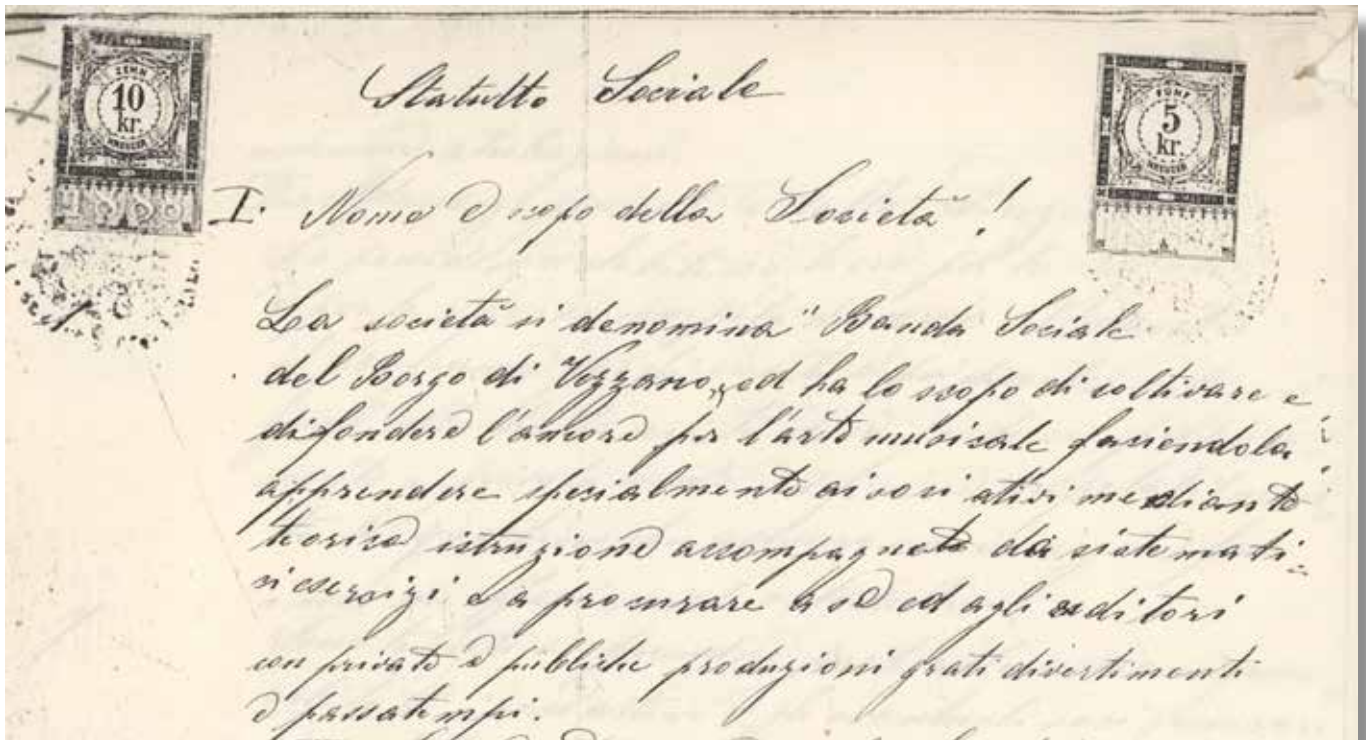 ZEHN
10
kr.
KREUZER
FÜNF
5
kr.
KREUZER
Statutto Sociale
I. Nome e scopo della Società!
La società si denomina "Banda Sociale
del Borgo di Vezzano„ ed ha lo scopo di coltivare e
difondere l'amore per l'arte musicale faciendola
apprendere specialmente ai soci ativi mediante
teorica istruzione accompagnata da sistemati-
ci esercizi e a procurare a se ed agli uditori
con private e pubbliche produzioni grati divertimenti
e passatempi.